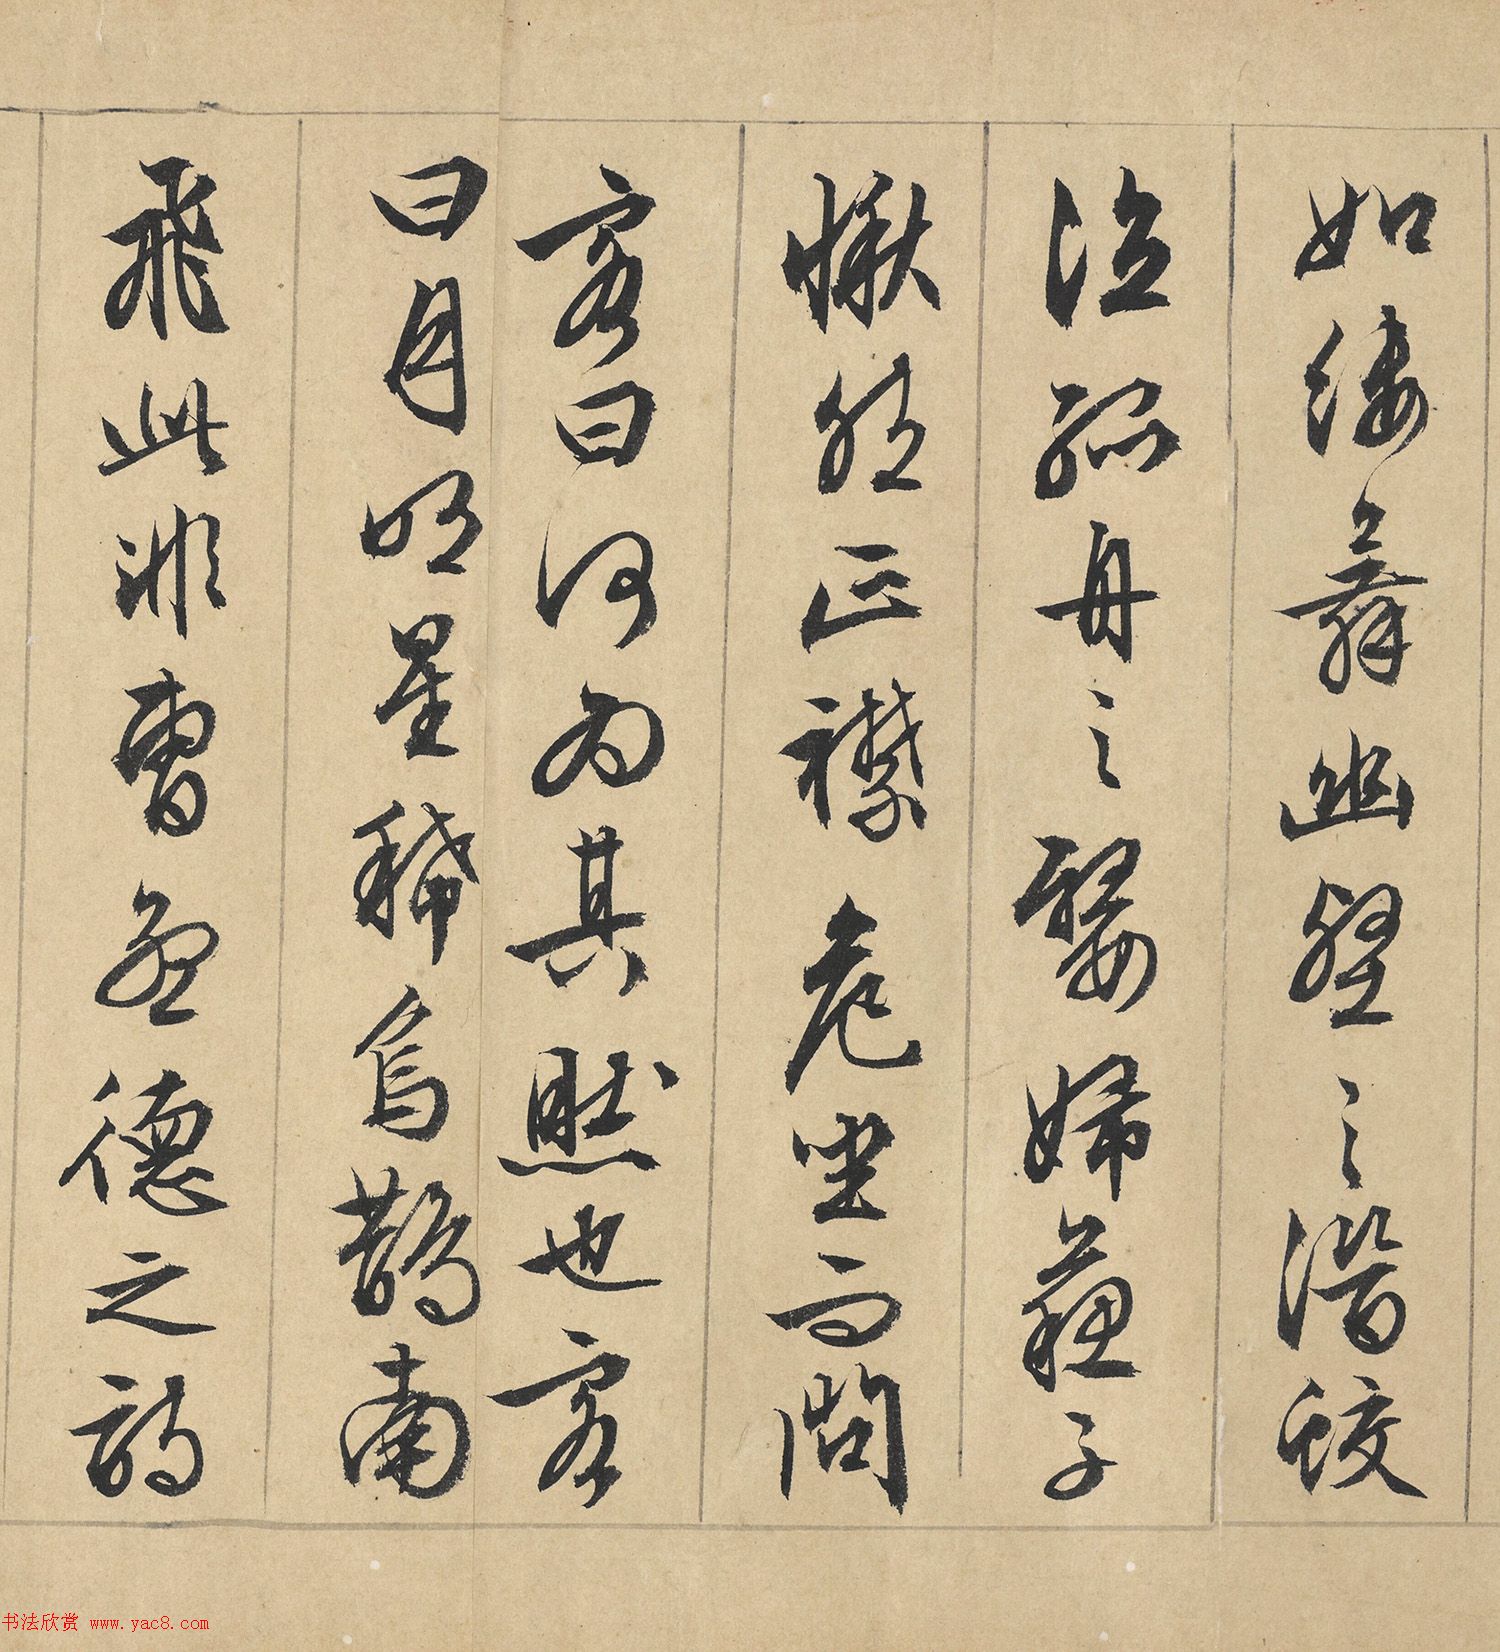 如縷舞幽壑之潛蛟
泣孤舟之嫠婦蘇子
愀然正襟危坐而問
客曰何為其然也客
曰月明星稀烏鵲南
飛此非曹孟德之詩
书法欣赏 www.yac8.com